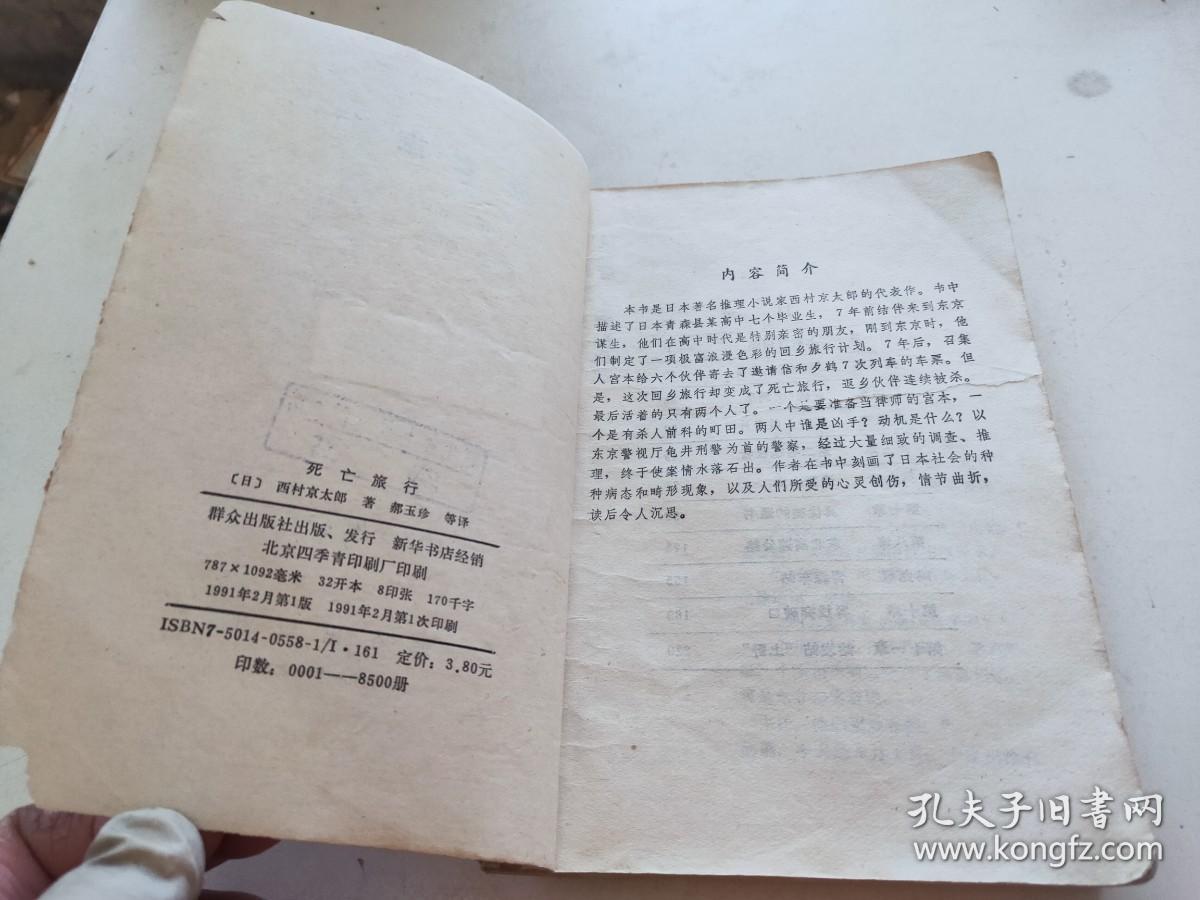 死亡旅行
〔日〕西村京太郎 著 郝玉珍 等译
群众出版社出版、发行 新华书店经销
北京四季青印刷厂印刷
787×1092毫米 32开本 8印张 170千字
1991年2月第1版 1991年2月第1次印刷
ISBN7-5014-0558-1/I·161 定价：3.80元
印数：0001——8500册
内容简介
本书是日本著名推理小说家西村京太郎的代表作。书中
描述了日本青森县某高中七个毕业生，7年前结伴来到东京
谋生，他们在高中时代是特别亲密的朋友，刚到东京时，他
们制定了一项极富浪漫色彩的回乡旅行计划。7年后，召集
人宫本给六个伙伴寄去了邀请信和夕鹤7次列车的车票。但
是，这次回乡旅行却变成了死亡旅行，返乡伙伴连续被杀。
最后活着的只有两个人了。一个是要准备当律师的宫本，一
个是有杀人前科的町田。两人中谁是凶手？动机是什么？以
东京警视厅龟井刑警为首的警察，经过大量细致的调查、推
理，终于使案情水落石出。作者在书中刻画了日本社会的种
种病态和畸形现象，以及人们所受的心灵创伤，情节曲折，
读后令人沉思。
孔夫子旧书网
www.kongfz.com